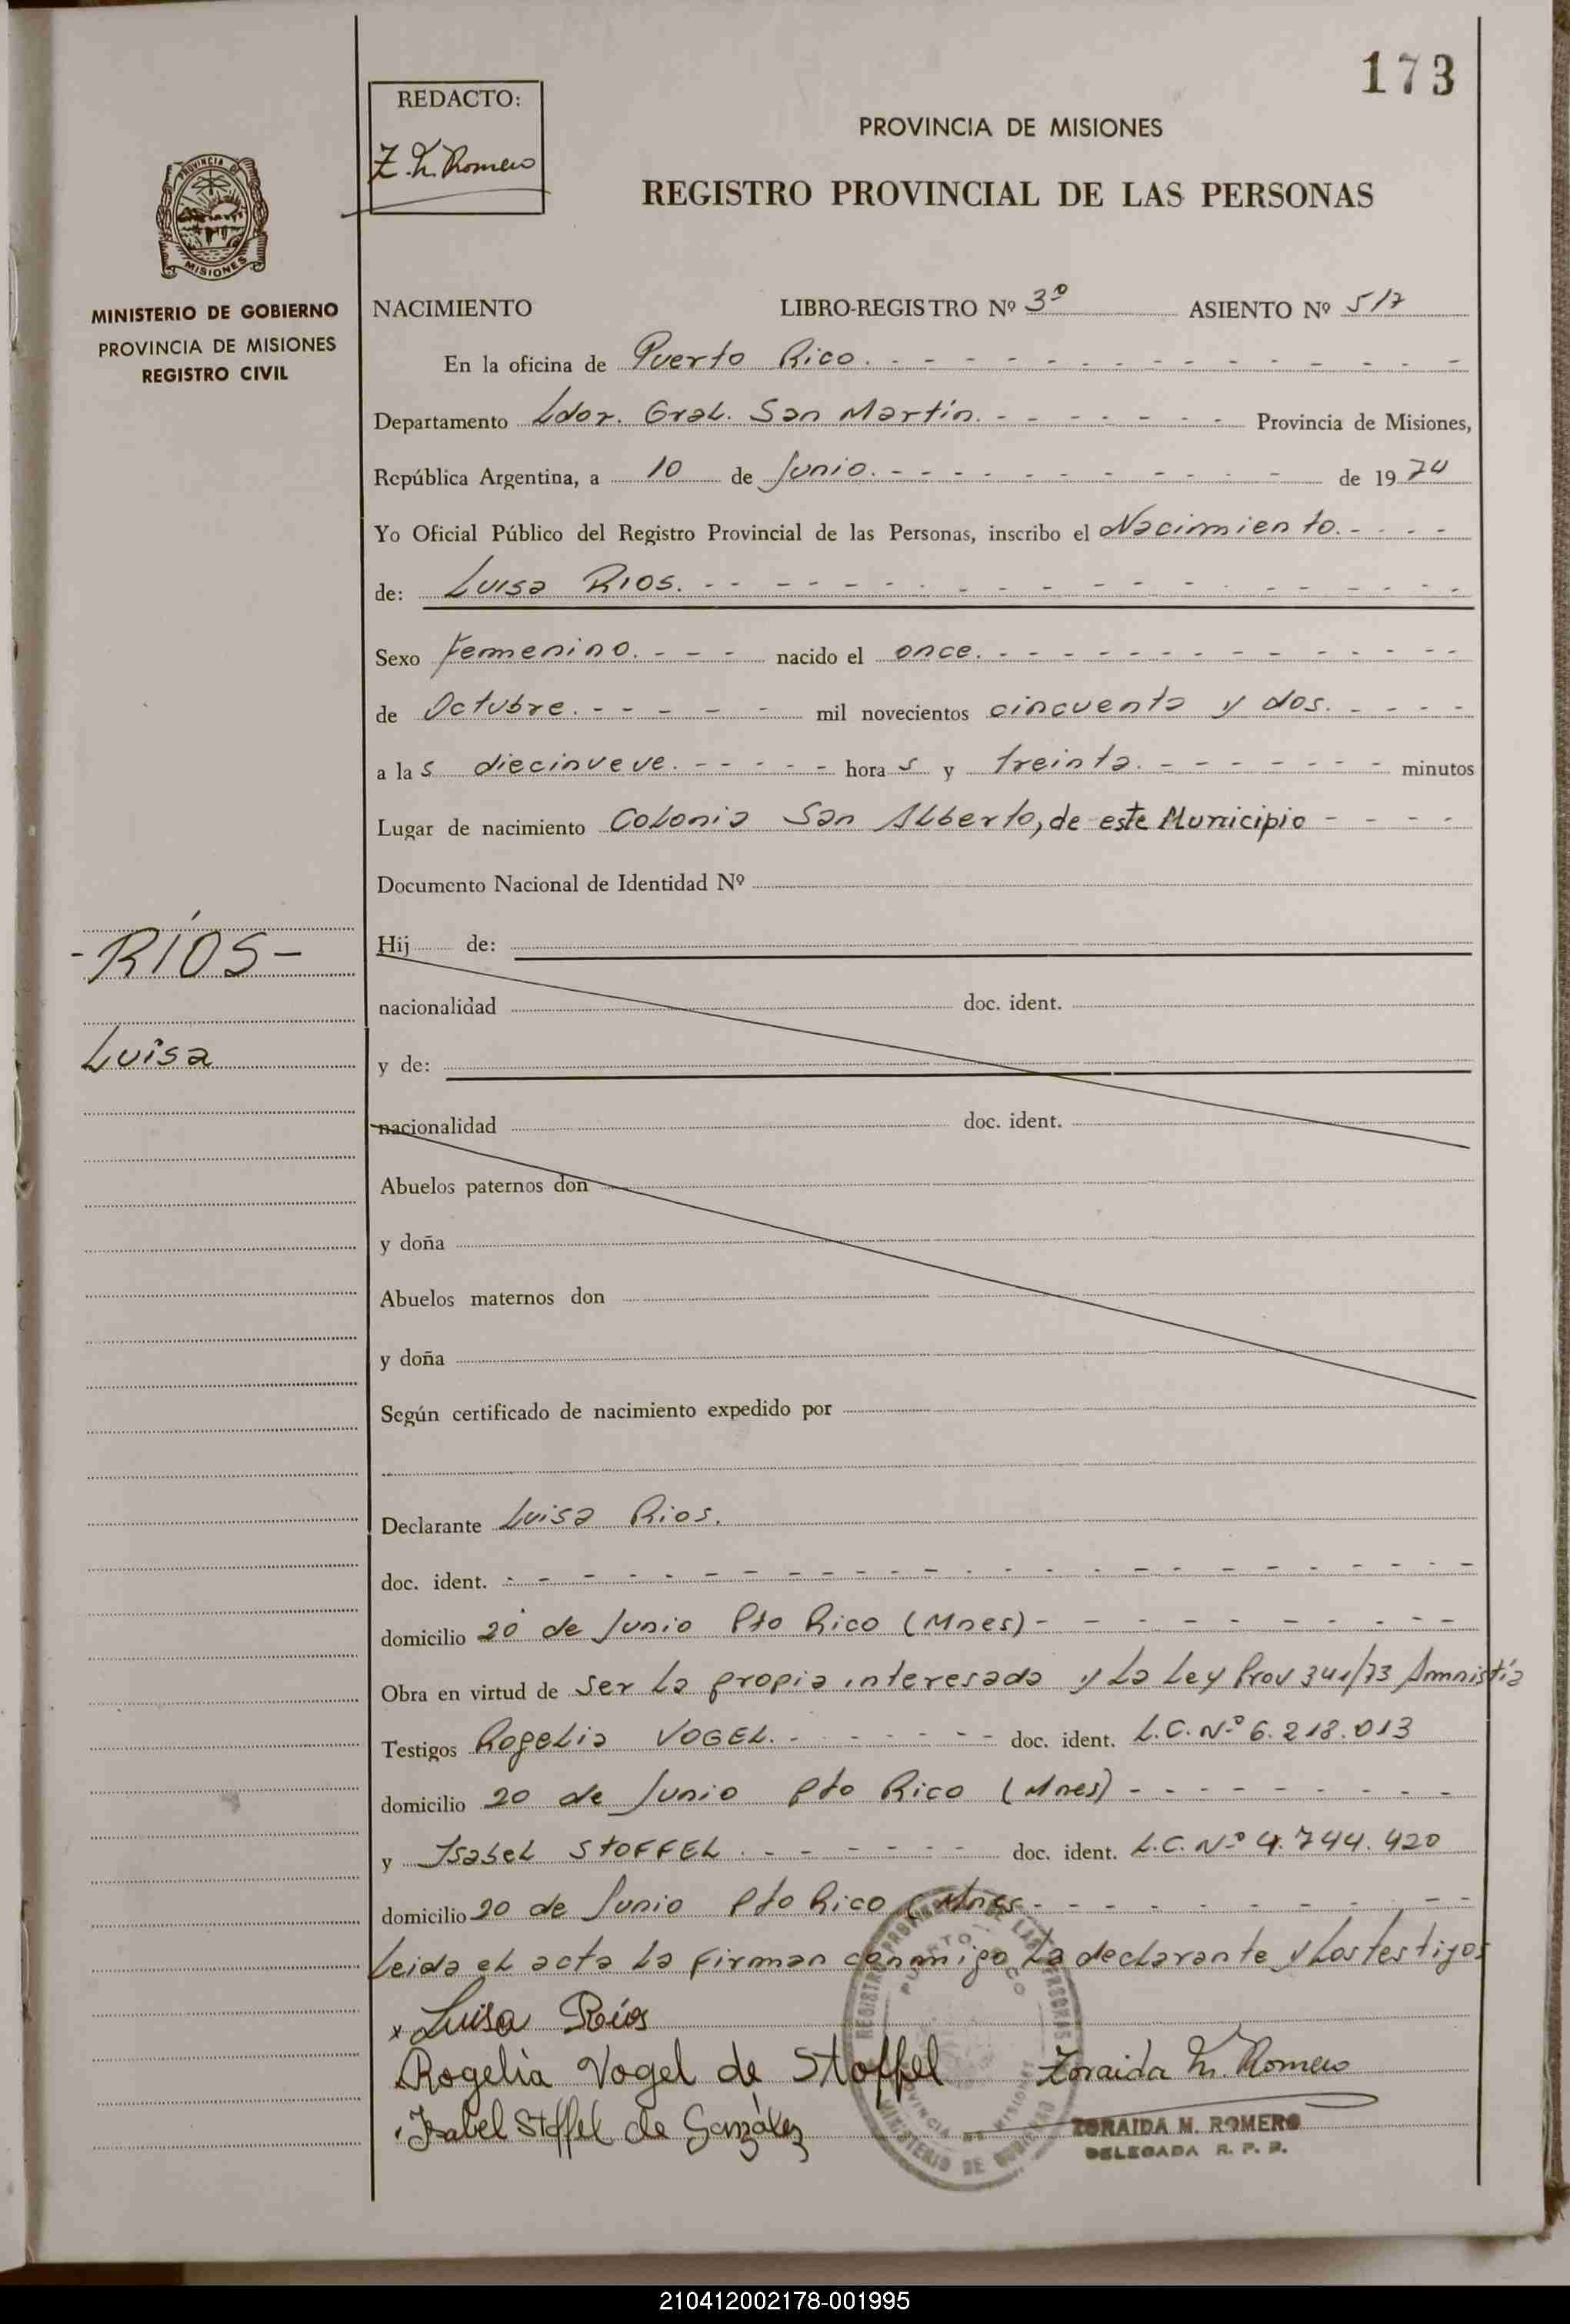 173
REDACTO:
Z. M. Romero
PROVINCIA DE MISIONES
REGISTRO PROVINCIAL DE LAS PERSONAS
PROVINCIA DE
MISIONES
MINISTERIO DE GOBIERNO
PROVINCIA DE MISIONES
REGISTRO CIVIL
NACIMIENTO LIBRO-REGISTRO Nº 3º ASIENTO Nº 517
En la oficina de Puerto Rico.
Departamento Ldor. Gral. San Martín. Provincia de Misiones,
República Argentina, a 10 de Junio. de 1974
Yo Oficial Público del Registro Provincial de las Personas, inscribo el Nacimiento.
de: Luisa RIOS.
Sexo femenino. nacido el once.
de Octubre. mil novecientos cincuenta y dos.
a las diecinueve. horas y treinta. minutos
Lugar de nacimiento Colonia San Alberto, de este Municipio
Documento Nacional de Identidad Nº
- RÍOS -
Luisa
Hij de:
nacionalidad doc. ident.
y de:
nacionalidad doc. ident.
Abuelos paternos don
y doña
Abuelos maternos don
y doña
Según certificado de nacimiento expedido por
Declarante Luisa Rios.
doc. ident.
domicilio 20 de Junio Pto Rico (Mnes)
Obra en virtud de ser la propia interesada y la Ley Prov 341/73 Amnistía
Testigos Rogelia VOGEL. doc. ident. L.C. Nº 6.218.013
domicilio 20 de Junio Pto Rico (Mnes)
y Isabel STOFFEL. doc. ident. L.C. Nº 4.744.420
domicilio 20 de Junio Pto Rico (Mnes
Leida el acta la firman conmigo la declarante y los testigos
x Luisa Ríos
Rogelia Vogel de Stoffel Zoraida M. Romero
Isabel Stoffel de González
ZORAIDA M. ROMERO
DELEGADA R. P. P.
REGISTRO PROVINCIAL DE LAS PERSONAS
PUERTO RICO
PROVINCIA DE MISIONES
MINISTERIO DE GOBIERNO
210412002178-001995